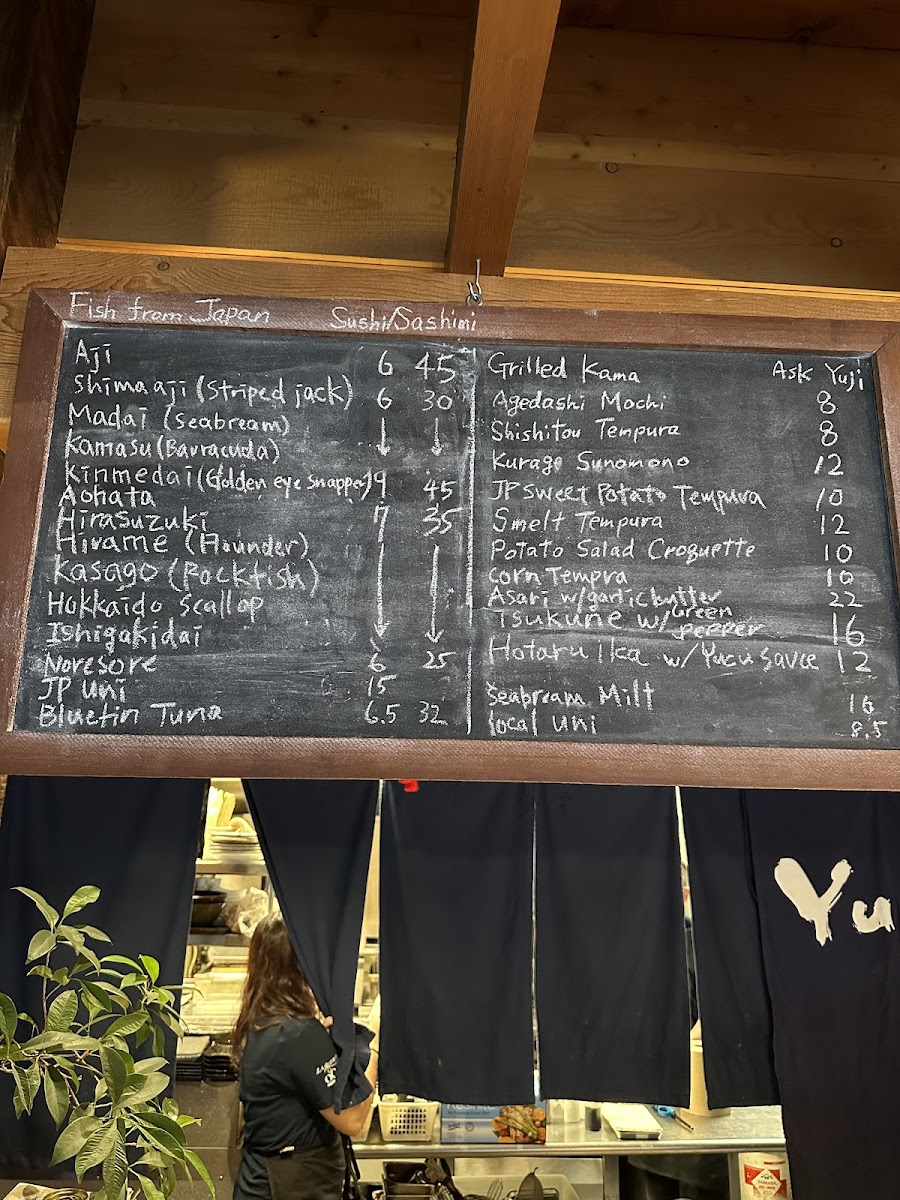 Fish from Japan Sushi/Sashimi
Aji 6 45
Shima aji (Striped jack) 6 30
Madai (Seabream) ↓ ↓
Kamasu (Barracuda)
Kinmedai (Golden eye snapper) 9 45
Aohata
Hirasuzuki 7 35
Hirame (Flounder)
Kasago (Rockfish)
Hokkaido Scallop
Ishigakidai
Noresore 6 25
JP uni 15
Bluefin Tuna 6.5 32
Grilled Kama Ask Yuji
Agedashi Mochi 8
Shishitou Tempura 8
Kurage Sunomono 12
JP Sweet Potato Tempura 10
Smelt Tempura 12
Potato Salad Croquette 10
Corn Tempra 10
Asari w/garlic butter 22
Tsukune w/ Green
pepper 16
Hotaru Ika w/ Yuzu sauce 12
Seabream Milt 16
local uni 8.5
Yu